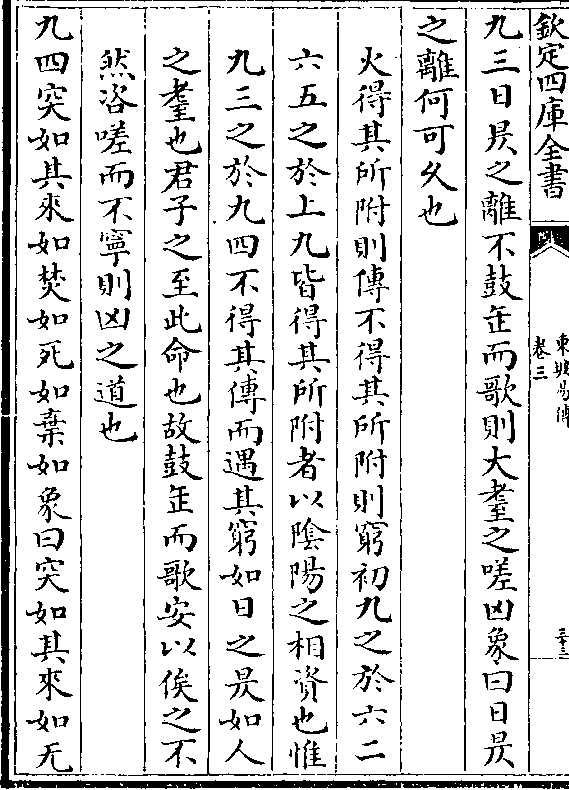 欽定四庫全書
東坡易傳
卷三
三十三
九三日昃之離不鼓缶而歌則大耋之嗟凶象曰日昃
之離何可久也
火得其所附則傳不得其所附則窮初九之於六二
六五之於上九皆得其所附者以陰陽之相資也惟
九三之於九四不得其傳而遇其窮如日之昃如人
之耋也君子之至此命也故鼓缶而歌安以俟之不
然咨嗟而不寧則凶之道也
九四突如其來如焚如死如棄如象曰突如其來如无